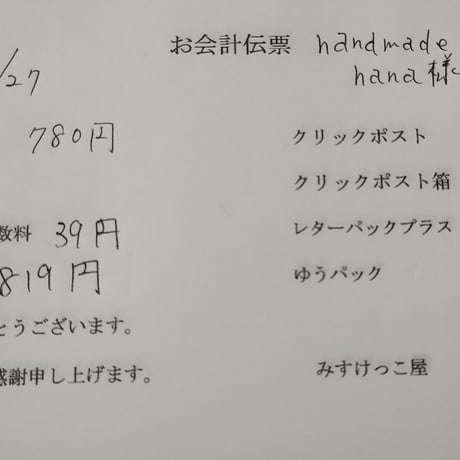 お会計伝票 handmade
/27 hana様
780円 クリックポスト
クリックポスト箱
数料 39円 レターパックプラス
819円 ゆうパック
とうございます。
感謝申し上げます。 みすけっこ屋